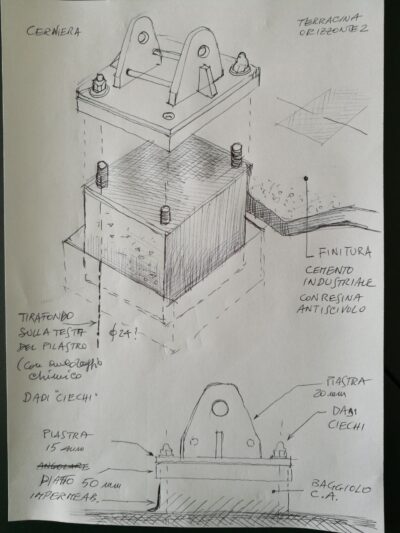 CERNIERA
TERRACINA
ORIZZONTE 2
FINITURA
CEMENTO
INDUSTRIALE
CON RESINA
ANTISCIVOLO
TIRAFONDO
SULLA TESTA
DEL PILASTRO
(con ancoraggio
chimico
DADI "CIECHI"
φ24!
PIASTRA
20 mm
DADI
CIECHI
PIASTRA
15 mm
ANGOLARE
PIATTO 50 mm
IMPERMEAB.
BAGGIOLO
C.A.